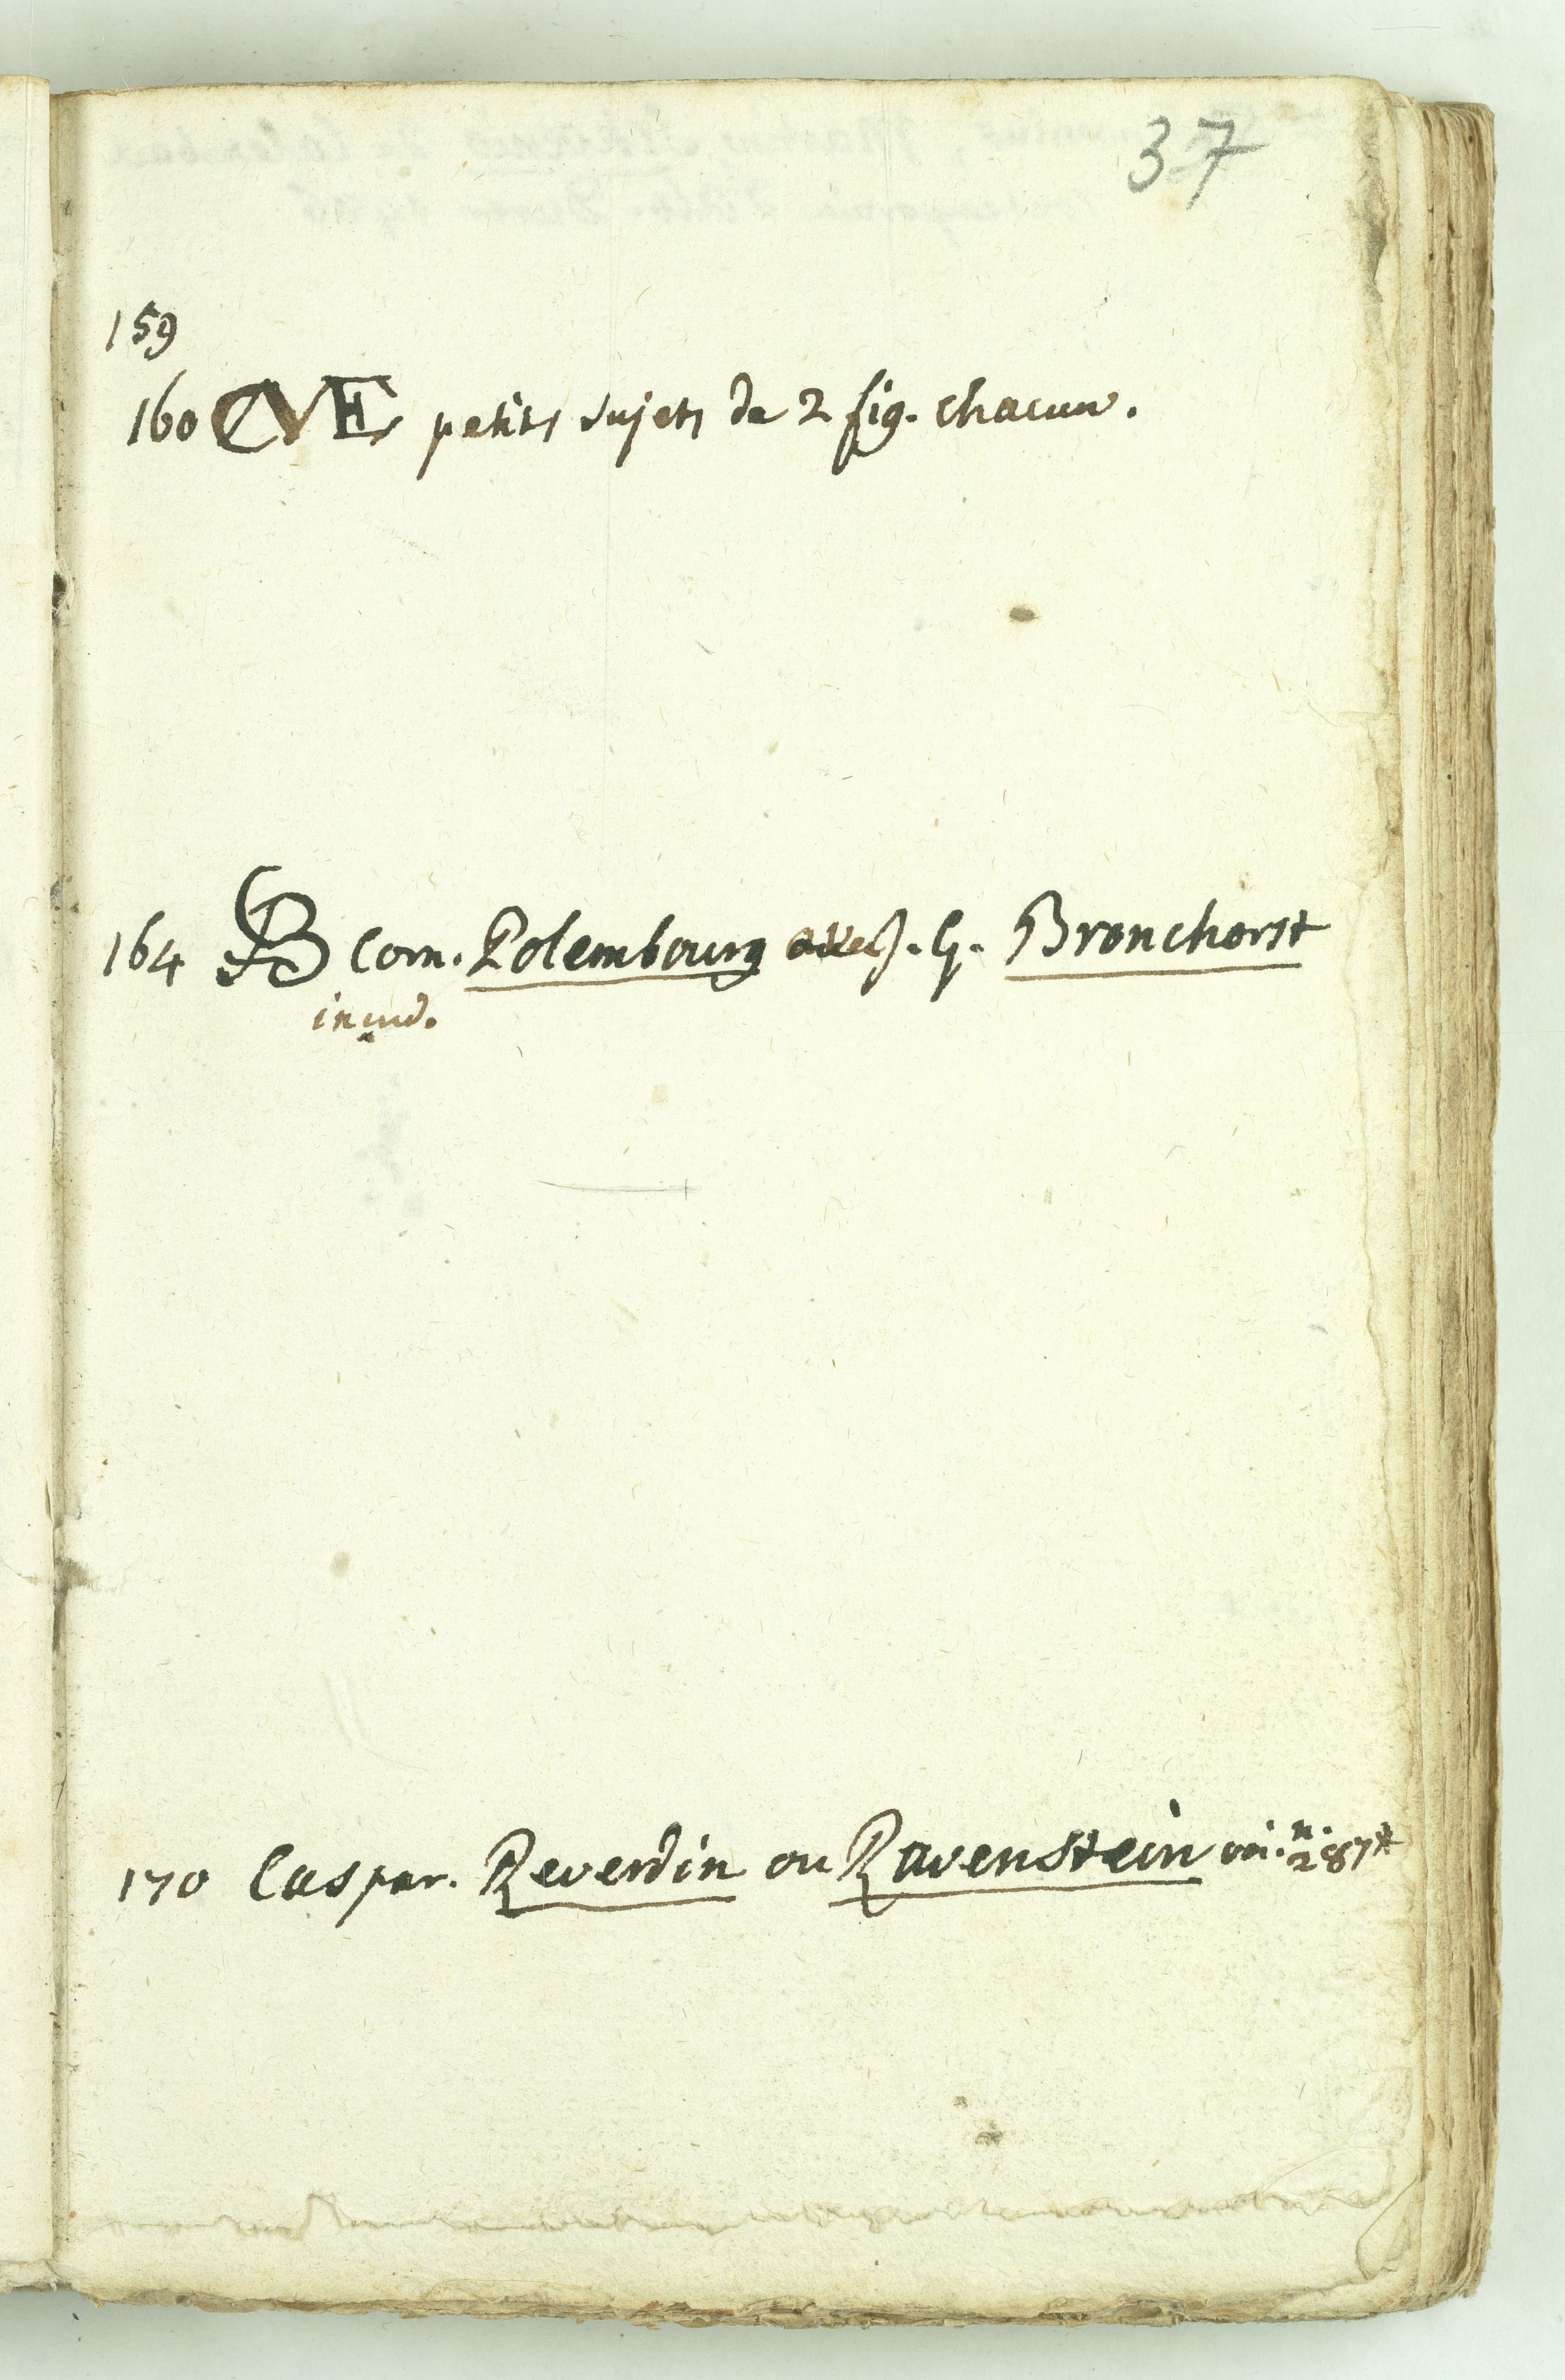 37
159
160 CVE petits sujets de 2 fig. chacun.
164 CB Corn. Polembourg avec J. G. Bronchorst
incid.
170 Caspar. Reverdin ou Ravenstein n. 287